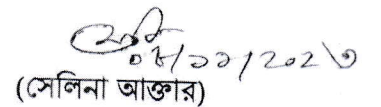 ০৮/১১/২০২৩
(সেলিনা আক্তার)